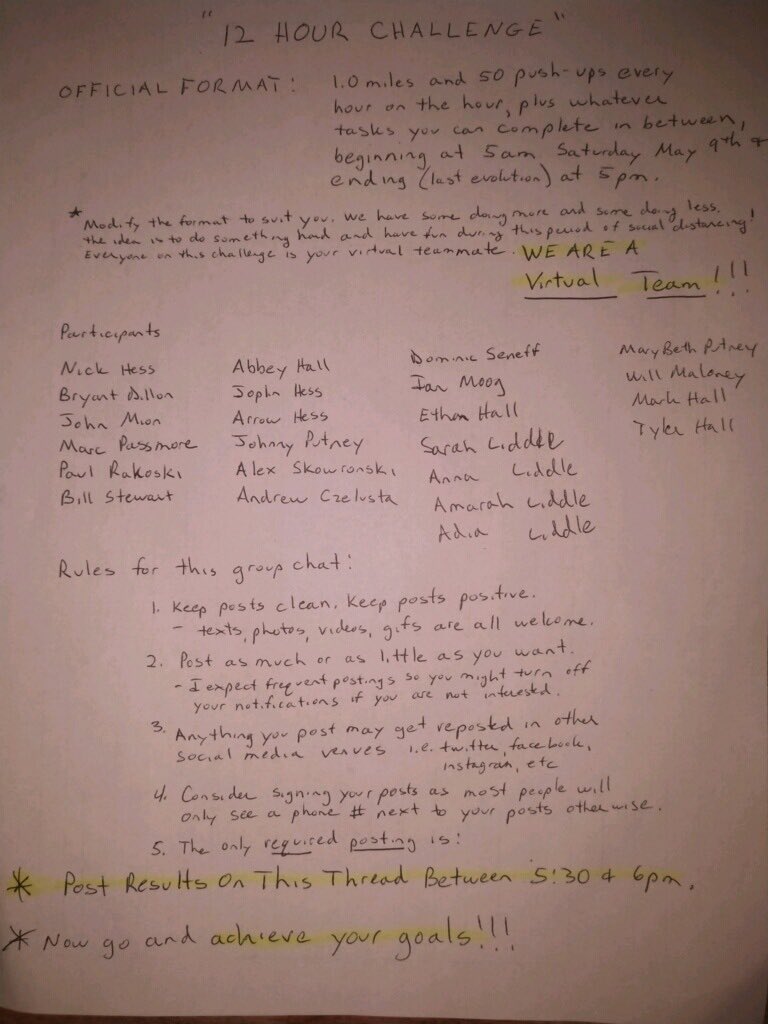 "12 HOUR CHALLENGE"
OFFICIAL FORMAT: 1.0 miles and 50 push-ups every
hour on the hour, plus whatever
tasks you can complete in between,
beginning at 5am Saturday May 9th &
ending (last evolution) at 5pm.
* Modify the format to suit you. We have some doing more and some doing less.
the idea is to do something hard and have fun during this period of social distancing!
Everyone on this challenge is your virtual teammate. WE ARE A
Virtual Team!!!
Participants
Nick Hess
Bryant Dillon
John Mion
Marc Passmore
Paul Rakoski
Bill Stewart
Abbey Hall
Joph Hess
Arrow Hess
Johnny Putney
Alex Skowronski
Andrew Czelusta
Dominic Seneff
Ian Moog
Ethan Hall
Sarah Liddle
Anna Liddle
Amarah Liddle
Adia Liddle
MaryBeth Putney
Will Maloney
Mark Hall
Tyler Hall
Rules for this group chat:
1. Keep posts clean. Keep posts positive.
- texts, photos, videos, gifs are all welcome.
2. Post as much or as little as you want.
- I expect frequent postings so you might turn off
your notifications if you are not interested.
3. Anything you post may get reposted in other
social media venues i.e. twitter, facebook,
instagram, etc
4. Consider signing your posts as most people will
only see a phone # next to your posts otherwise.
5. The only required posting is:
* Post Results On This Thread Between 5:30 & 6pm.
* Now go and achieve your goals!!!